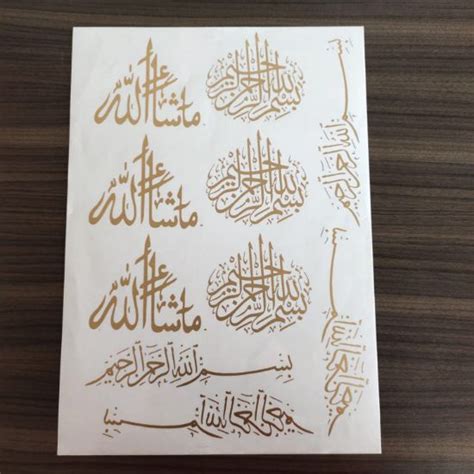 بسم الله الرحمن الرحيم
بسم الله الرحمن الرحيم
ما شاء الله
بسم الله الرحمن الرحيم
ما شاء الله
بسم الله الرحمن الرحيم
ما شاء الله
بسم الله الرحمن الرحيم